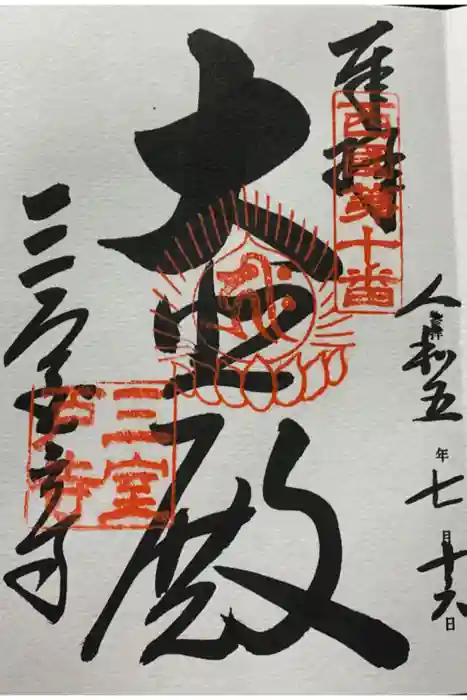 奉拝
西國第十番
大悲殿
三室戸寺
三室
戸寺
令和五年七月十六日